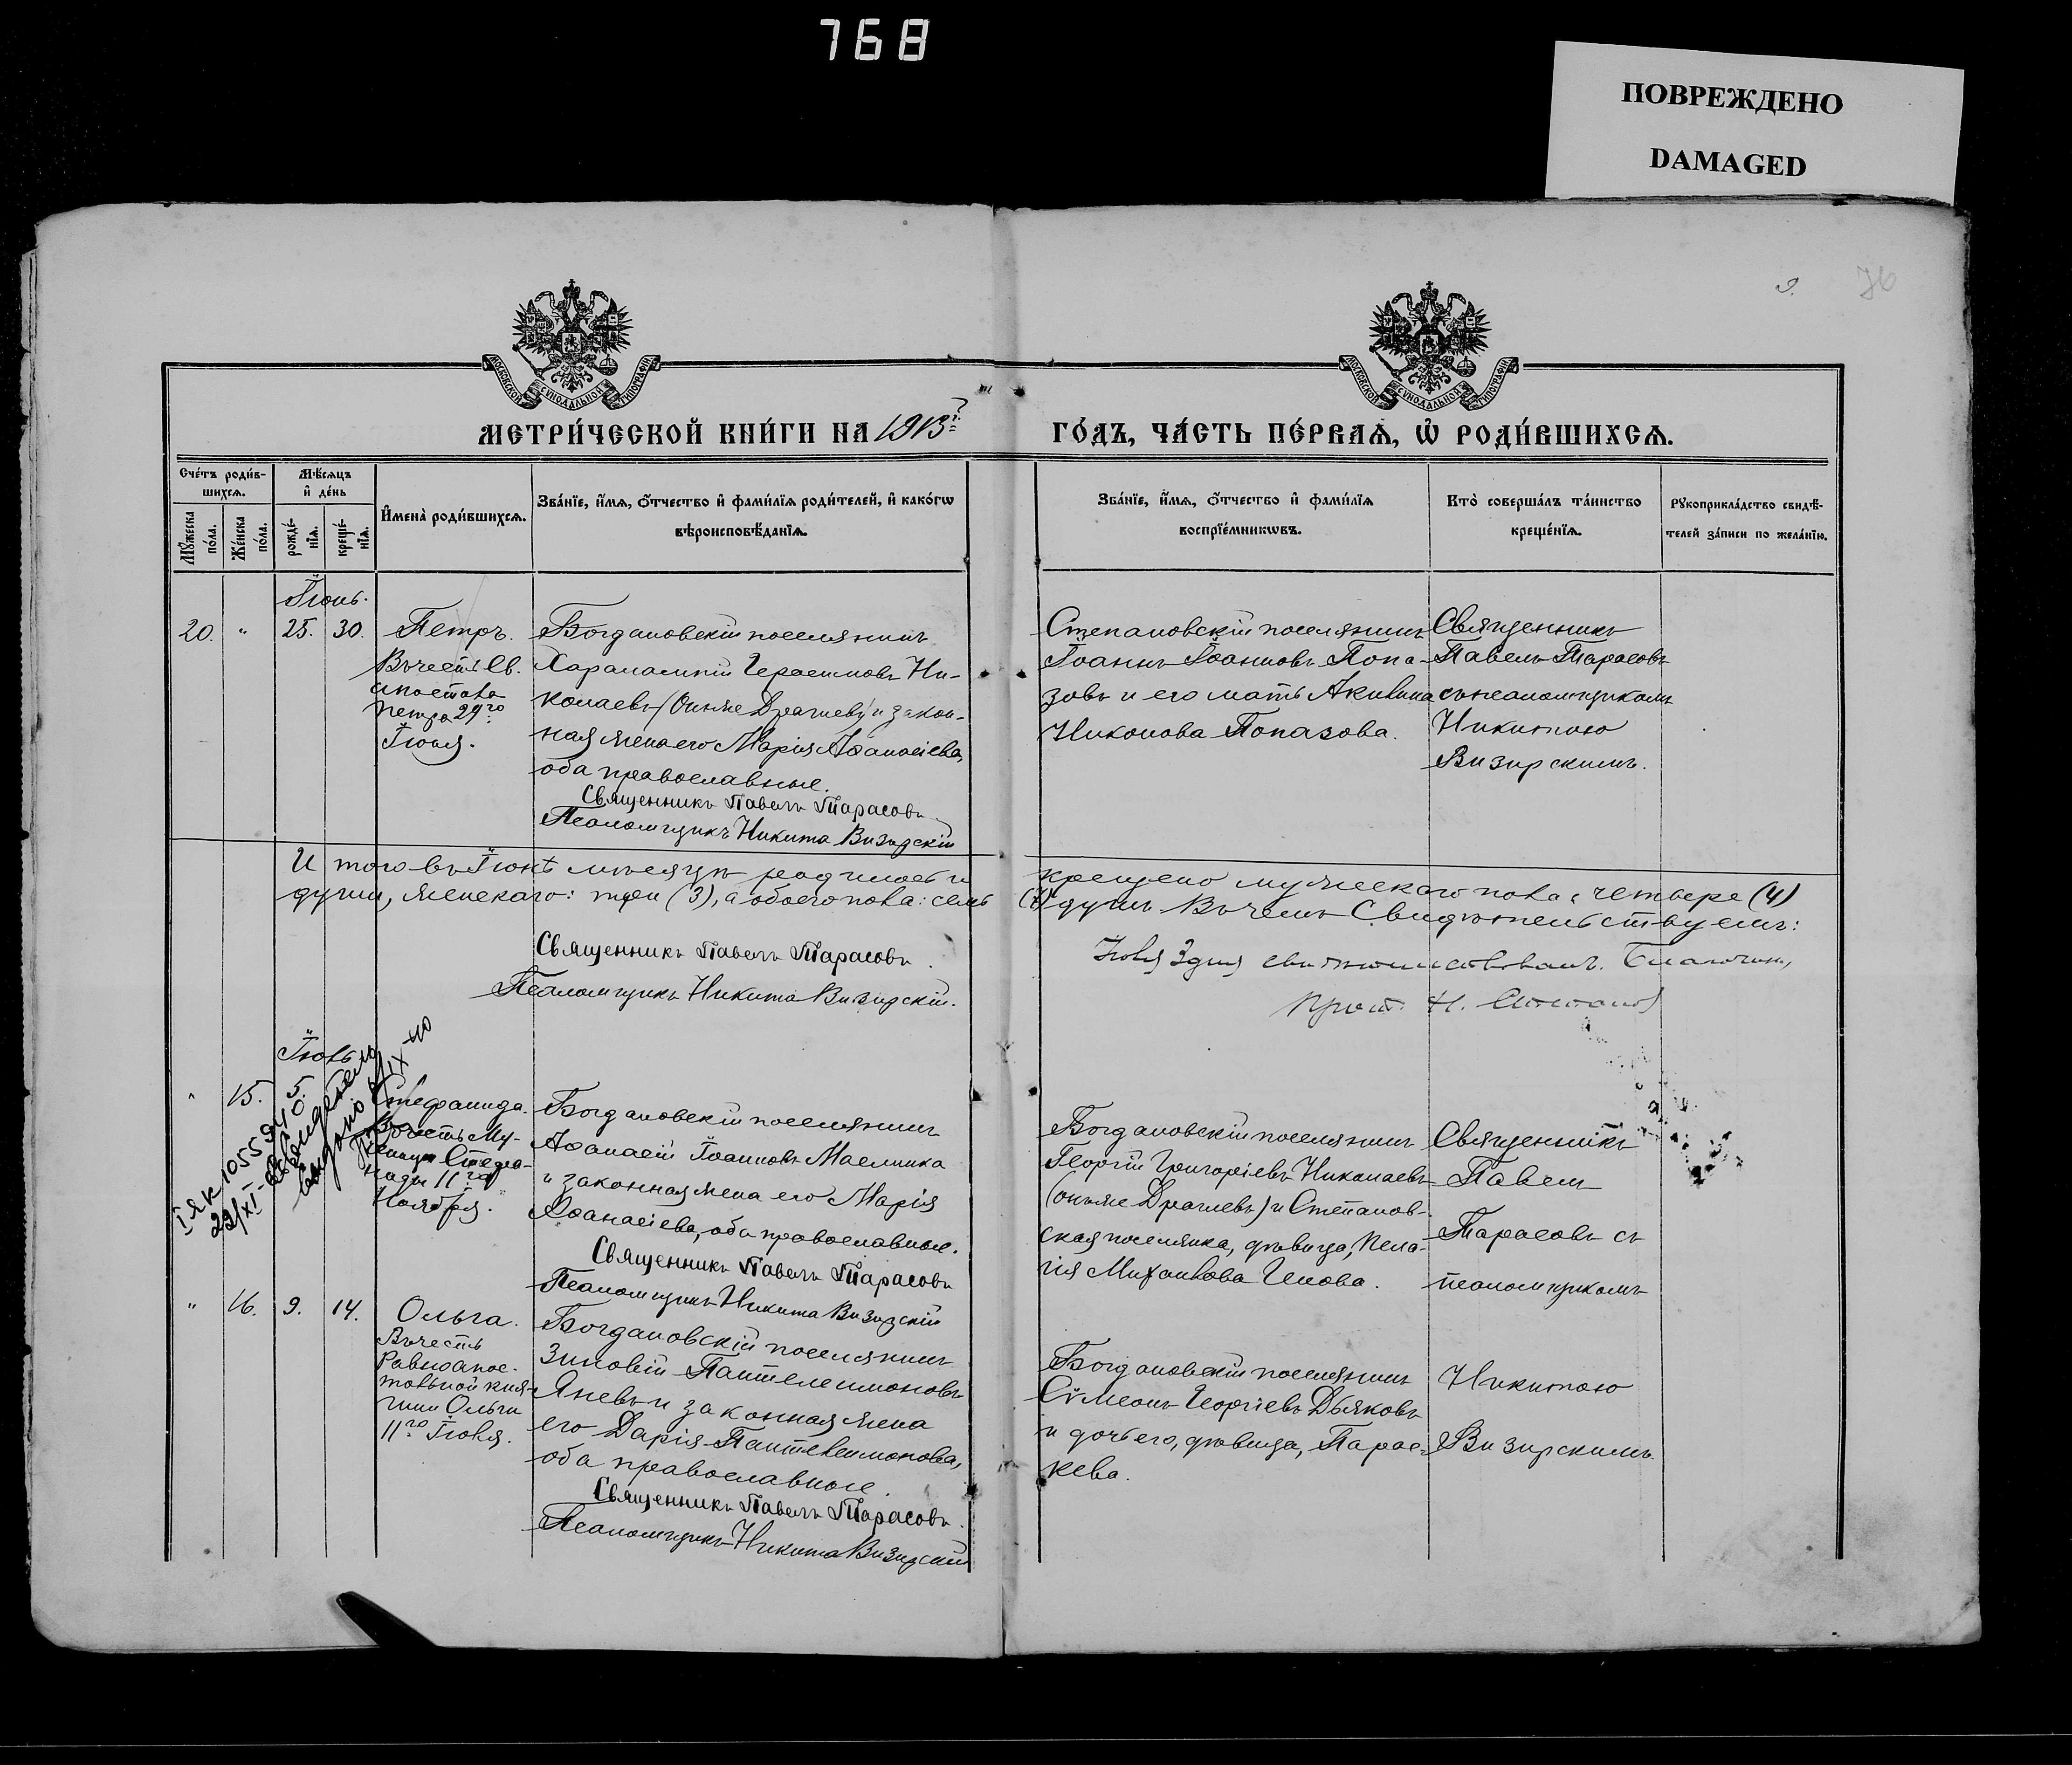 768
ПОВРЕЖДЕНО
DAMAGED
9.
76
МОСКОВСКОЙ СѴНОДАЛЬНОЙ ТИПОГРАФІИ
МОСКОВСКОЙ СѴНОДАЛЬНОЙ ТИПОГРАФІИ
МЕТРИ́ЧЕСКОЙ КНИ́ГИ НА 1913й
ГО́ДЪ, ЧА́СТЬ ПЕ́РВАѦ, Ѡ҆ РОДИ́ВШИХСѦ.
Сче́тъ роди́в-
шихсѧ.
Мѣ́сѧцъ
и҆ де́нь
Мꙋ́жеска
по́ла.
Же́нска
по́ла.
рожде́-
нїѧ.
креще́-
нїѧ.
И҆мена̀ роди́вшихсѧ.
Зва́нїе, и҆́мѧ, ѻ҆́тчество и҆ фами́лїѧ роди́телей, и҆ како́гѡ
вѣроисповѣ́данїѧ.
Зва́нїе, и҆́мѧ, ѻ҆́тчество и҆ фами́лїѧ
воспрїе́мникѡвъ.
Кто̀ соверша́лъ та́инство
креще́нїѧ.
Рꙋкоприкла́дство свидѣ́-
телей за́писи по жела́нїю.
Іюнь.
20. " 25. 30. Петръ.
Въ честь Св.
апостола
Петра 29го
Іюня.
Богдановскій поселянинъ
Харалампій Герасимовъ Ни-
колаевъ (онъ же Драгневъ) и закон-
ная жена его Марія Аѳанасіева,
оба православные.
Священникъ Павелъ Тарасовъ
Псаломщикъ Никита Визирскій
Степановскій поселянинъ
Іоаннъ Іоанновъ Попа-
зовъ и его мать Акилина
Никонова Попазова.
Священникъ
Павелъ Тарасовъ
съ псаломщикомъ
Никитою
Визирскимъ.
И того въ Іюнѣ мѣсяцѣ родилось и крещено мужескаго пола: четыре (4)
души, женскаго: три (3), а обоего пола: семь (7) душъ. Въ чемъ Свидѣтельствуемъ:
Священникъ Павелъ Тарасовъ.
Псаломщикъ Никита Визирскій.
Іюля 3 дня свидѣтельствовалъ. Благочин.,
Прот. Н.
Іюль
" 15. 5. Стефанида.
Въ честь Му-
ченицы Стефа-
ниды 11го
Ноября.
Богдановскій поселянинъ
Аѳанасій Іоанновъ Маслинка
и законная жена его Марія
Аѳанасіева, оба православные.
Священникъ Павелъ Тарасовъ
Псаломщикъ Никита Визирскій
Богдановскій поселянинъ
Георгій Григоріевъ Николаевъ
(онъ же Драгневъ) и Степанов-
ская поселянка, дѣвица, Пела-
гія Михаилова Генова.
Священникъ
Павелъ
Тарасовъ съ
псаломщикомъ
" 16. 9. 14. Ольга.
Въ честь
Равноапос-
тольной кня-
гини Ольги
11го Іюля.
Богдановскій поселянинъ
Зиновій Пантелеимоновъ
Яневъ и законная жена
его Дарія Пантелеимонова,
оба православные.
Священникъ Павелъ Тарасовъ.
Псаломщикъ Никита Визирскій
Богдановскій поселянинъ
Сѵмеонъ Георгіевъ Дьяковъ
и дочь его, дѣвица, Парас-
кева.
Никитою
Визирскимъ.